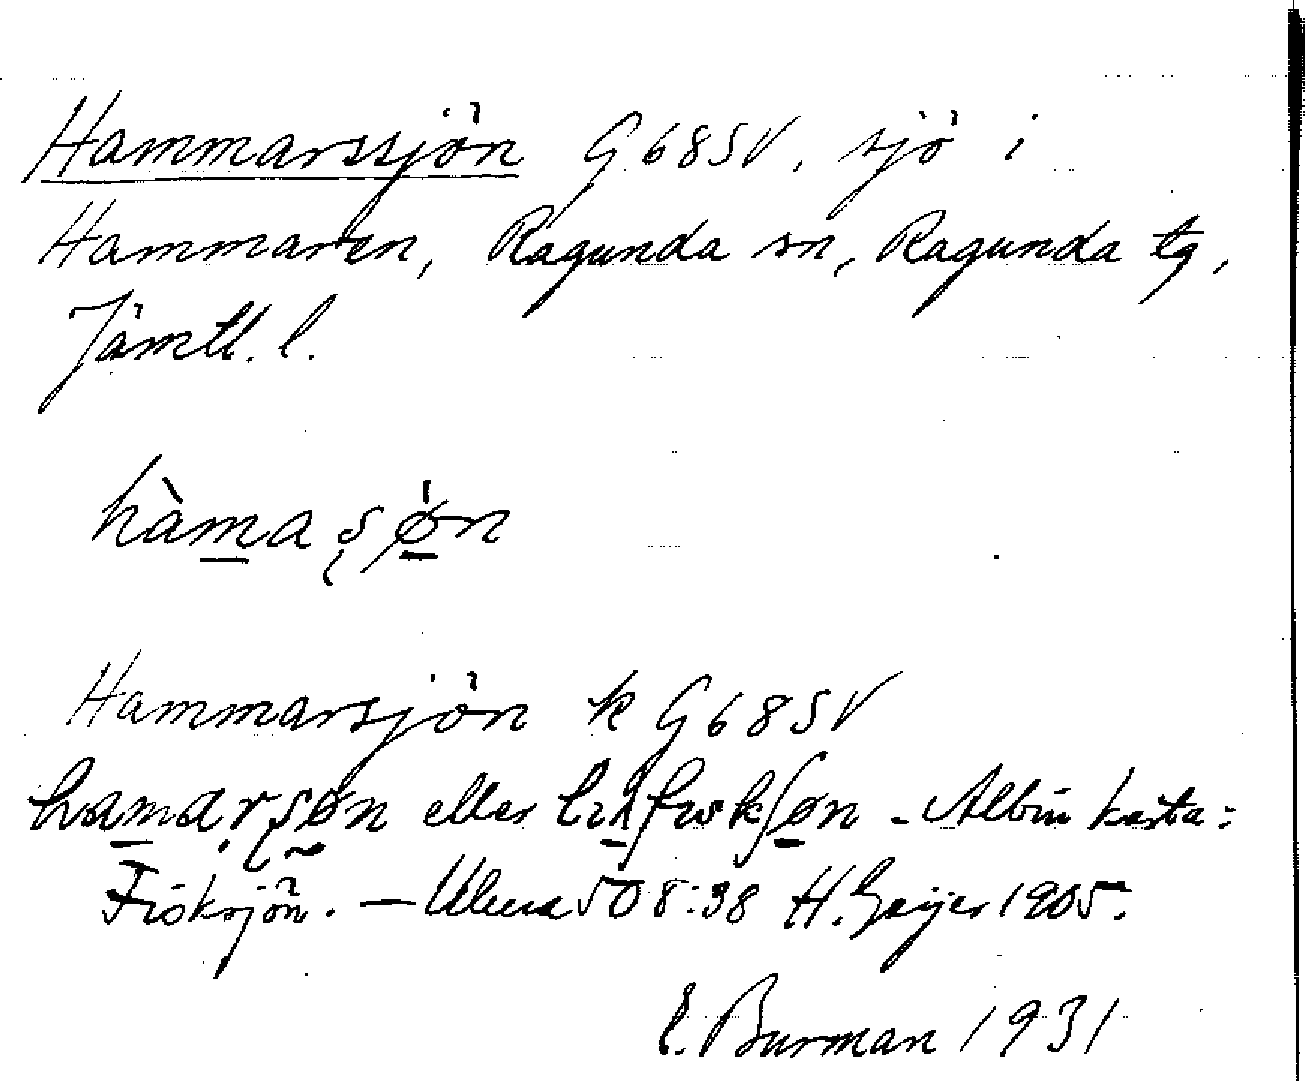 Hammarssjön G68SV, sjö i
Hammaren, Ragunda sn, Ragunda tg,
Jämtl. l.
hàmaʂǿn
Hammarsjön k G68SV
hamarʂøn eller
- Albin karta:
Fisksjön. — Uluna 508:38 H. Geijer 1905.
E. Burman 1931